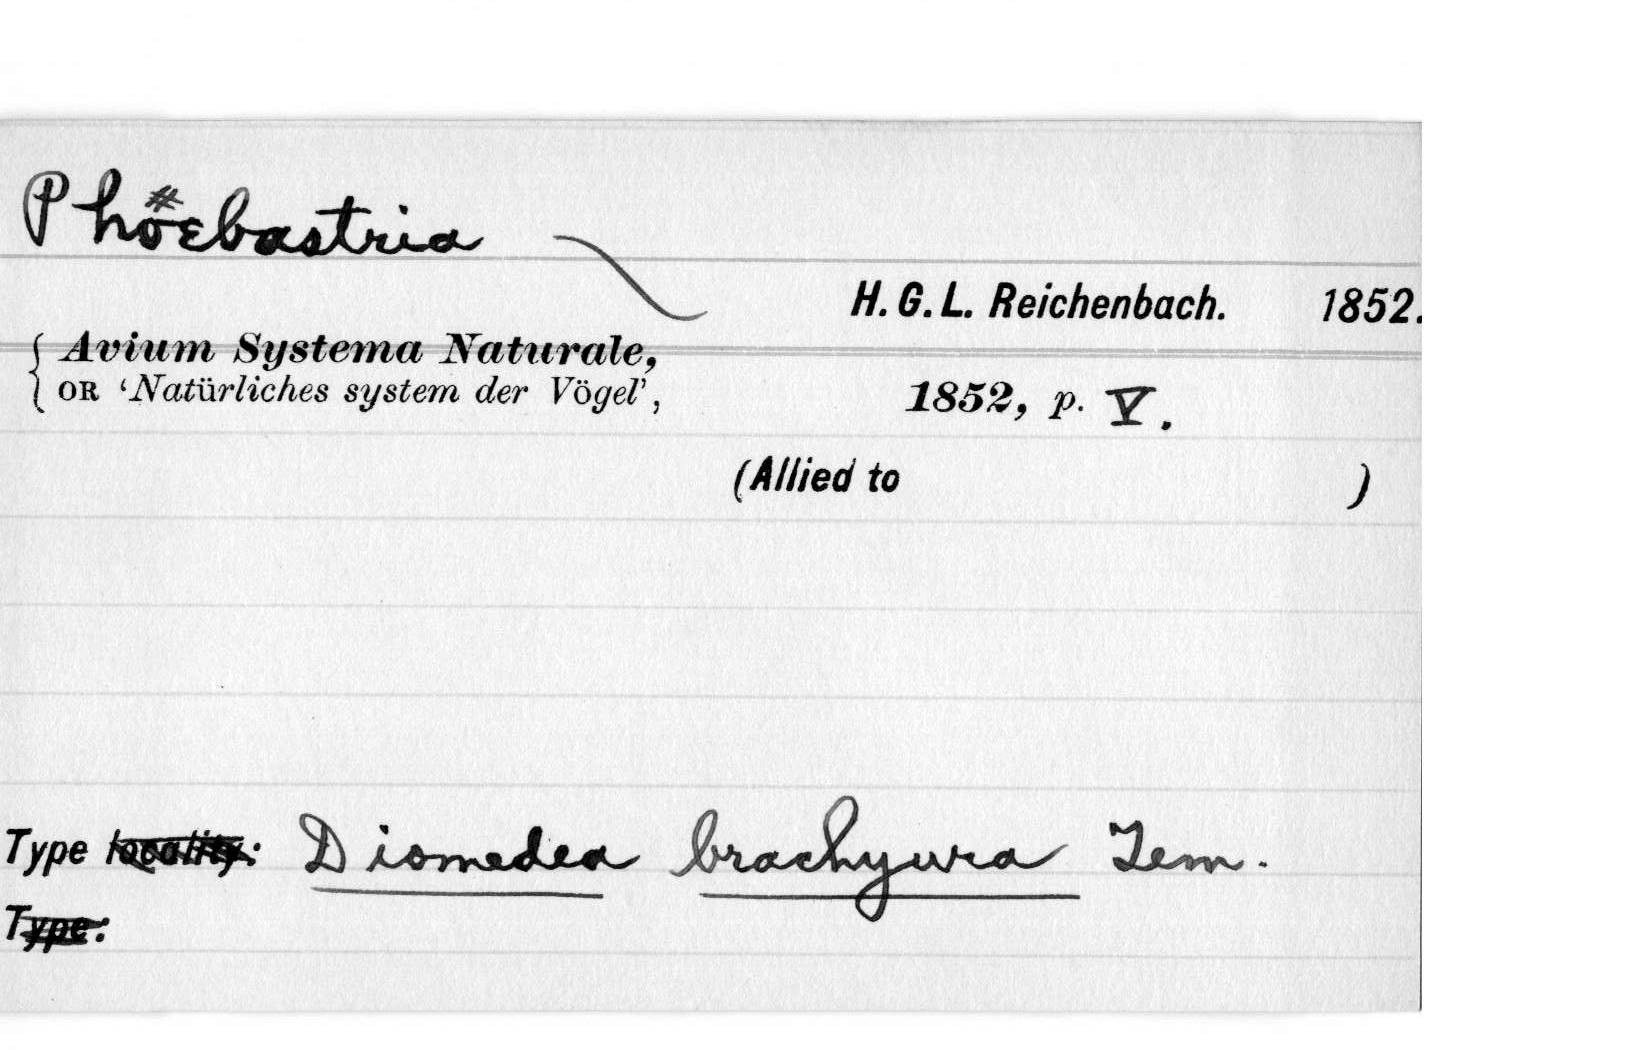 Phöebastria
H. G. L. Reichenbach. 1852.
Avium Systema Naturale,
OR ‘Natürliches system der Vögel’, 1852, p. V.
(Allied to )
Type locality: Diomedea brachyura Tem.
Type: